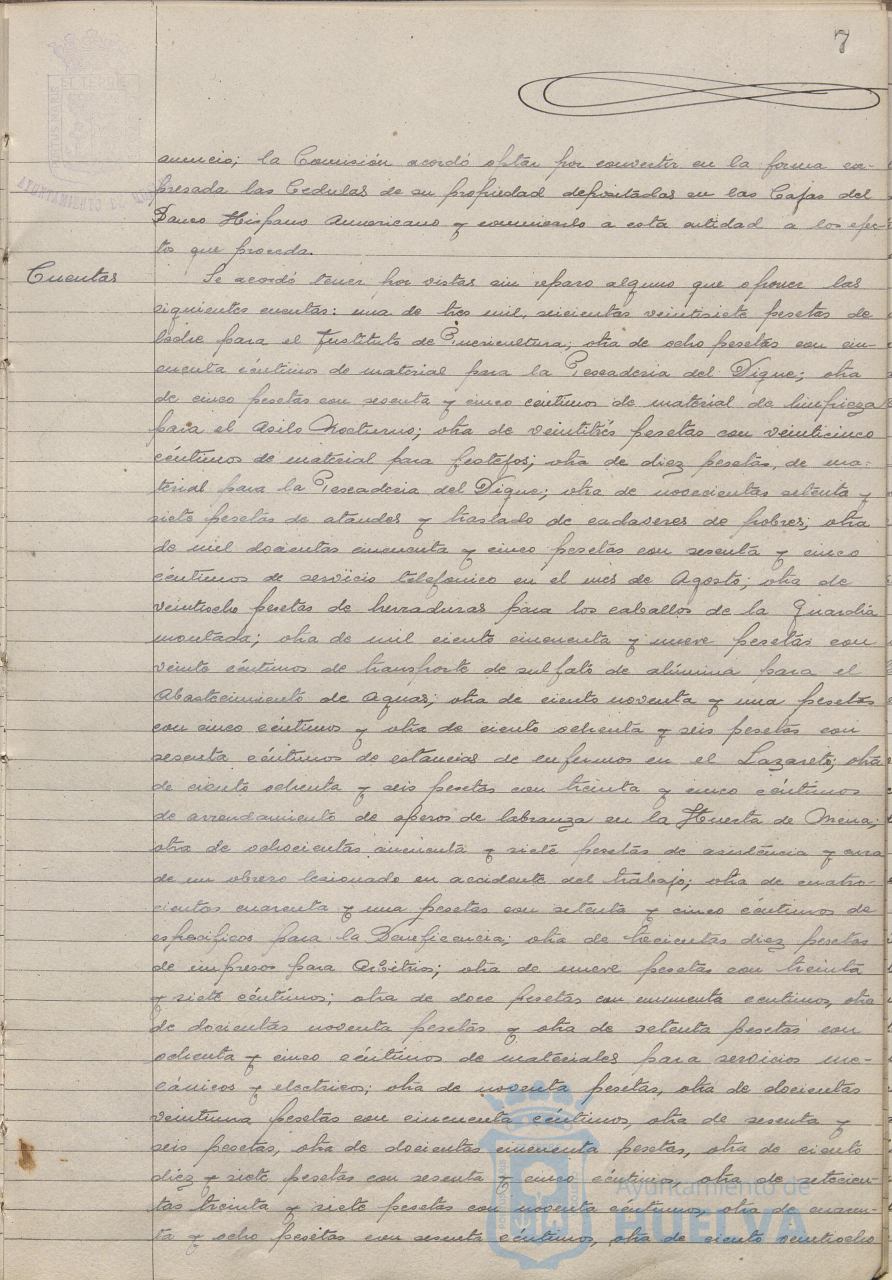 7
anuncio; la Comisión acordó optar por convertir en la forma ex-
presada las Cédulas de su propiedad depositadas en las Cajas del
Banco Hispano Americano y comunicarlo a esta entidad a los efec-
to que proceda.
Cuentas
Se acordó tener por vistas sin reparo alguno que oponer las
siguientes cuentas: una de tres mil, seicientas veintisiete pesetas de
leche para el Instituto de Puericultura; otra de ocho pesetas con cin-
cuenta céntimos de material para la Pescaderia del Dique; otra
de cinco pesetas con sesenta y cinco céntimos de material de limpieza
para el Asilo Nocturno; otra de veintitrés pesetas con veinticinco
céntimos de material para festejos; otra de diez pesetas, de ma-
terial para la Pescaderia del Dique; otra de novecientas setenta y
siete pesetas de ataudes y traslado de cadaveres de pobres; otra
de mil docientas cincuenta y cinco pesetas con sesenta y cinco
céntimos de servicio telefonico en el mes de Agosto; otra de
veintiocho pesetas de herraduras para los caballos de la Guardia
montada; otra de mil ciento cincuenta y nueve pesetas con
veinte céntimos de transporte de sulfato de alúmina para el
Abastecimiento de Aguas; otra de ciento noventa y una pesetas
con cinco céntimos y otra de ciento ochenta y seis pesetas con
sesenta céntimos de estancias de enfermos en el Lazareto; otra
de ciento ochenta y seis pesetas con treinta y cinco céntimos
de arrendamiento de aperos de labranza en la Huerta de Mena;
otra de ochocientas cincuenta y siete pesetas de asistencia y cura
de un obrero lesionado en accidente del trabajo; otra de cuatro-
cientas cuarenta y una pesetas con setenta y cinco céntimos de
especificos para la Beneficencia; otra de trecientas diez pesetas
de impresos para Arbitrios; otra de nueve pesetas con treinta
y siete céntimos; otra de doce pesetas con cincuenta centimos, otra
de docientas noventa pesetas y otra de setenta pesetas con
ochenta y cinco céntimos de materiales para servicios me-
cánicos y electricos; otra de noventa pesetas, otra de docientas
veintiuna pesetas con cincuenta céntimos, otra de sesenta y
seis pesetas, otra de docientas cincuenta pesetas, otra de ciento
diez y siete pesetas con sesenta y cinco céntimos, otra de setecien-
tas treinta y siete pesetas con noventa centimos, otra de cuaren-
ta y ocho pesetas con sesenta céntimos, otra de ciento veintiocho
Ayuntamiento de
HUELVA